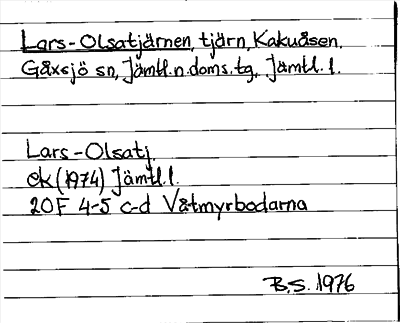 Lars-Olsatjärnen, tjärn, Kakuåsen,
Gåxsjö sn, Jämtl.n.doms.tg, Jämtl.l.
Lars-Olsatj.
ek (1974) Jämtl.l.
20F 4-5 c-d Våtmyrbodarna
B.S. 1976